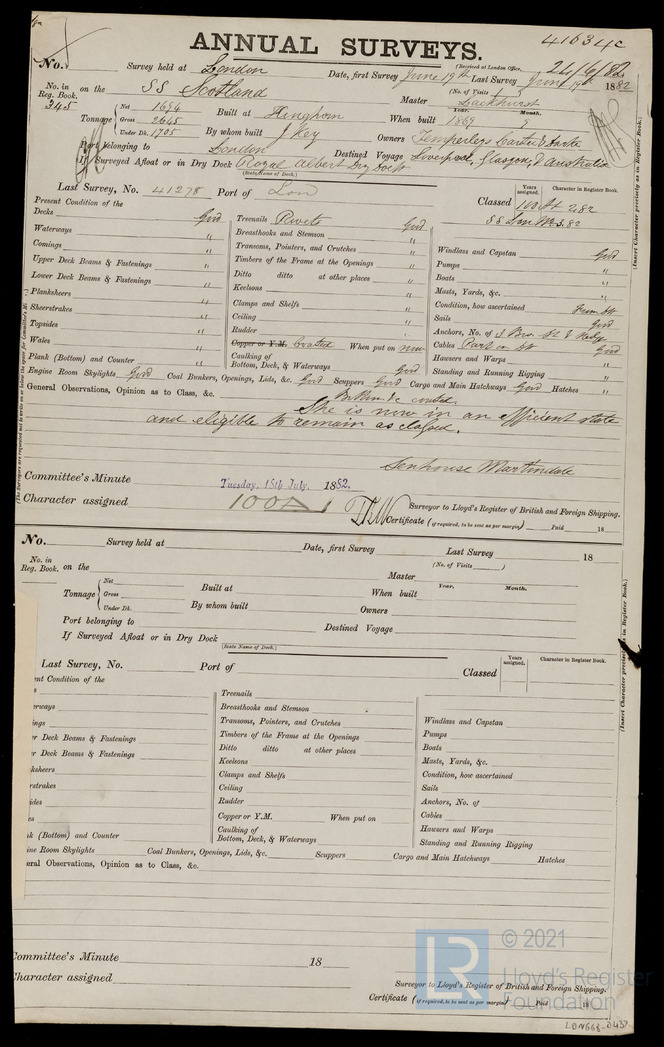 41634c
ANNUAL SURVEYS.
No. Survey held at London Date, first Survey June 19th Last Survey June 19th 1882
(Received at London Office, 24/6/82
(No. of Visits 1)
No. in Reg. Book. 345 on the SS Scotland Master Lackhurst
Tonnage Net 1694 Gross 2645 Under Dk. 1705 Built at Kinghorn When built 1869 Year. Month. 5
By whom built J Key Owners Temperleys Carter & Darke
Port belonging to London Destined Voyage Liverpool, Glasgow, & Australia
If Surveyed Afloat or in Dry Dock Royal Albert Dry Dock
(State Name of Dock.)
Last Survey, No. 41278 Port of Lon Classed 100 A1 2,82
Years assigned. Character in Register Book.
SS Lon No 3.82
Present Condition of the
Decks Good
Waterways "
Comings "
Upper Deck Beams & Fastenings "
Lower Deck Beams & Fastenings "
Planksheers "
Sheerstrakes "
Topsides "
Wales "
Plank (Bottom) and Counter "
Treenails Rivets Good
Breasthooks and Stemson "
Transoms, Pointers, and Crutches "
Timbers of the Frame at the Openings "
Ditto ditto at other places "
Keelsons "
Clamps and Shelfs "
Ceiling "
Rudder "
Copper or Y.M. Coated When put on now
Caulking of Bottom, Deck, & Waterways Good
Windlass and Capstan Good
Pumps "
Boats "
Masts, Yards, &c. "
Condition, how ascertained From
Sails Good
Anchors, No. of 3
Cables Part Good
Hawsers and Warps "
Standing and Running Rigging "
Engine Room Skylights Good Coal Bunkers, Openings, Lids, &c. Good Scuppers Good Cargo and Main Hatchways Good Hatches "
General Observations, Opinion as to Class, &c. Bottom &c coated.
She is now in an efficient state
and eligible to remain as classed.
Senhouse Martindale
Committee's Minute Tuesday, 18th July, 1882.
Character assigned 100A1
Surveyor to Lloyd's Register of British and Foreign Shipping.
Certificate (if required, to be sent as per margin) Paid 18
(Insert Character precisely as in Register Book.)
No. Survey held at Date, first Survey Last Survey 18
(No. of Visits )
No. in Reg. Book. on the Master
Tonnage Net Gross Under Dk. Built at When built Year. Month.
By whom built Owners
Port belonging to Destined Voyage
If Surveyed Afloat or in Dry Dock
(State Name of Dock.)
Last Survey, No. Port of Classed
Years assigned. Character in Register Book.
nt Condition of the
erways
ings
r Deck Beams & Fastenings
r Deck Beams & Fastenings
ksheers
rstrakes
ides
es
k (Bottom) and Counter
Treenails
Breasthooks and Stemson
Transoms, Pointers, and Crutches
Timbers of the Frame at the Openings
Ditto ditto at other places
Keelsons
Clamps and Shelfs
Ceiling
Rudder
Copper or Y.M. When put on
Caulking of Bottom, Deck, & Waterways
Windlass and Capstan
Pumps
Boats
Masts, Yards, &c.
Condition, how ascertained
Sails
Anchors, No. of
Cables
Hawsers and Warps
Standing and Running Rigging
ine Room Skylights Coal Bunkers, Openings, Lids, &c. Scuppers Cargo and Main Hatchways Hatches
eral Observations, Opinion as to Class, &c.
ommittee's Minute 18
haracter assigned
Surveyor to Lloyd's Register of British and Foreign Shipping.
Certificate (if required, to be sent as per margin) Paid 18
(Insert Character precisely as in Register Book.)
LR © 2021
Lloyd's Register
Foundation
LDN668-0437